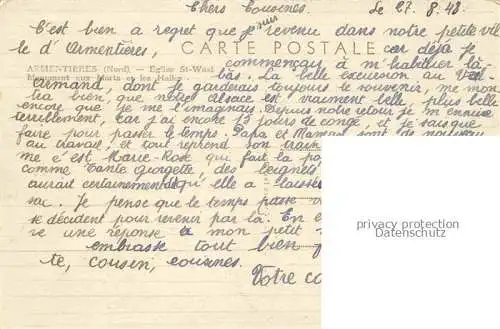 Chers Cousines. Le 27.8.48.
C'est bien a regret que je suis revenu dans notre petite vil
le d'Armentières, car déjà je
CARTE POSTALE
commençau à m'habituer là
ARMENTIERES (Nord). — Eglise St-Vaast
bas. La belle excursion au
Monument aux Morts et les Halles
Armand, dont je garderais toujours le souvenir, me mon
tra bien, que nôtre Alsace est vraiment belle, plus belle
encore que je me l'imaginais. Depuis notre retour je m'ennuie
terriblement, car j'ai encore 15 jours de congé, et je sais que
faire pour passer le temps. Papa et Maman sont de nouveau
au travail, et tout reprend son train
me c'est Marie-Rose qui fait la
comme Tante Georgette, des beignets
aurait certainement qu'elle a laissé
sac. Je pense que le temps passe
se décident pour revenir par là. En
ve une réponse à mon petit
embrasse tout bien
te, cousin, cousines.
Votre
privacy protection
Datenschutz